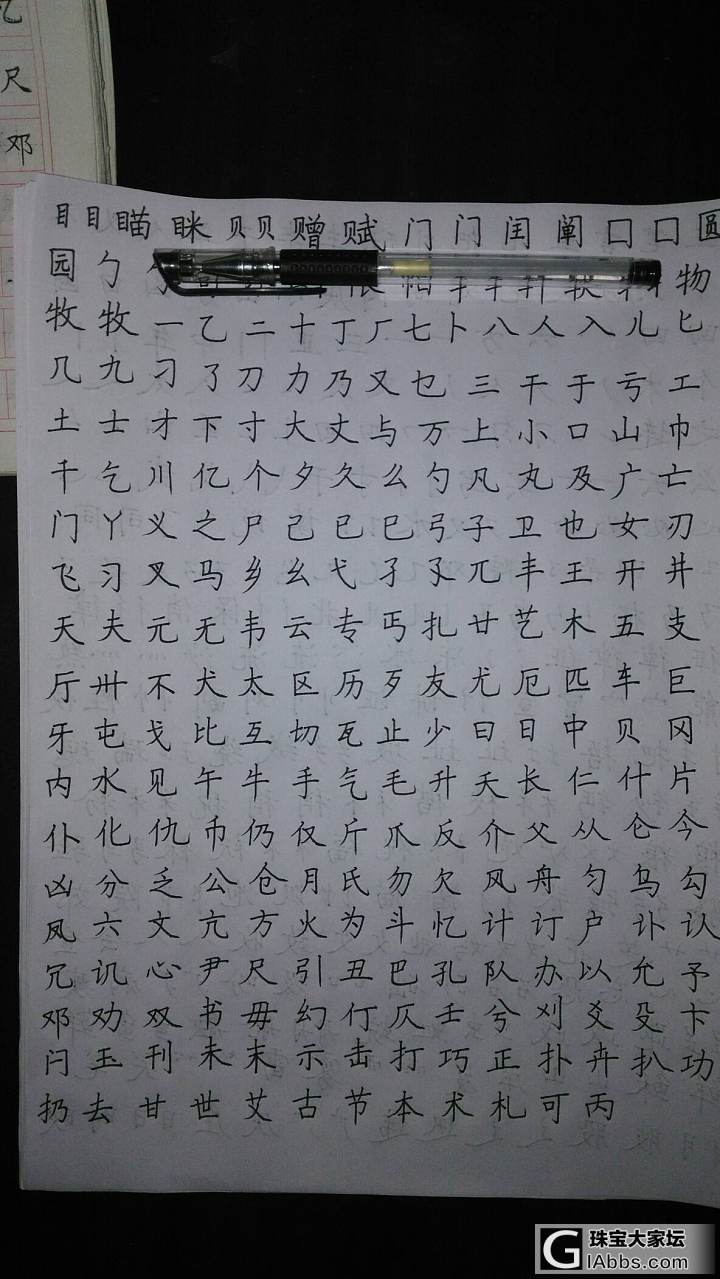 尺
邓
目 目 瞄 眯 贝 贝 赠 赋 门 门 闰 阐 口 口 圆
园 勹 物
牧 牧 一 乙 二 十 丁 厂 七 卜 八 人 入 儿 匕
几 九 刁 了 刀 力 乃 又 乜 三 干 于 亏 工
土 士 才 下 寸 大 丈 与 万 上 小 口 山 巾
千 乞 川 亿 个 夕 久 么 勺 凡 丸 及 广 亡
门 丫 义 之 尸 己 已 巳 弓 子 卫 也 女 刃
飞 习 叉 马 乡 幺 弋 孑 孓 兀 丰 王 开 井
天 夫 元 无 韦 云 专 丐 扎 廿 艺 木 五 支
厅 卅 不 犬 太 区 历 歹 友 尤 厄 匹 车 巨
牙 屯 戈 比 互 切 瓦 止 少 曰 日 中 贝 冈
内 水 见 午 牛 手 气 毛 升 夭 长 仁 什 片
仆 化 仇 币 仍 仅 斤 爪 反 介 父 从 仑 今
凶 分 乏 公 仓 月 氏 勿 欠 风 丹 匀 乌 勾
凤 六 文 亢 方 火 为 斗 忆 计 订 户 讣 认
冗 讥 心 尹 尺 引 丑 巴 孔 队 办 以 允 予
邓 劝 双 书 毋 幻 仃 仄 壬 兮 刈 爻 殳 卞
闩 玉 刊 未 末 示 击 打 巧 正 扑 卉 扒 功
扔 去 甘 世 艾 古 节 本 术 札 可 丙
珠宝大家坛
GIAbbs.com